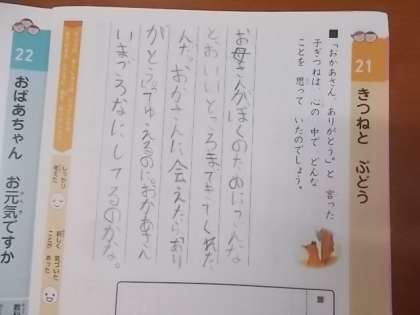 21
きつねと ぶどう
■「おかあさん、ありがとう。」と 言った
子ぎつねは、心の 中で どんな
ことを 思って いたのでしょう。
お母さんがぼくのためにこんな
とおいところまできてくれた
んだ。おかさんに会えたらあり
がとうがゆえるのに。おかあさん
いまごろなにしてるのかな。
しっかり
考えた
新しく 気づいた
ことが あった
22
おばあちゃん お元気ですか